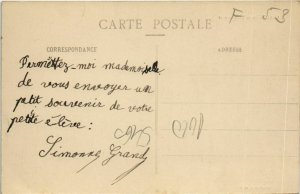 CARTE POSTALE
F 53
CORRESPONDANCE
ADRESSE
Permettez-moi mademoiselle
de vous envoyer un
petit souvenir de votre
petite élève :
Simonne Grand